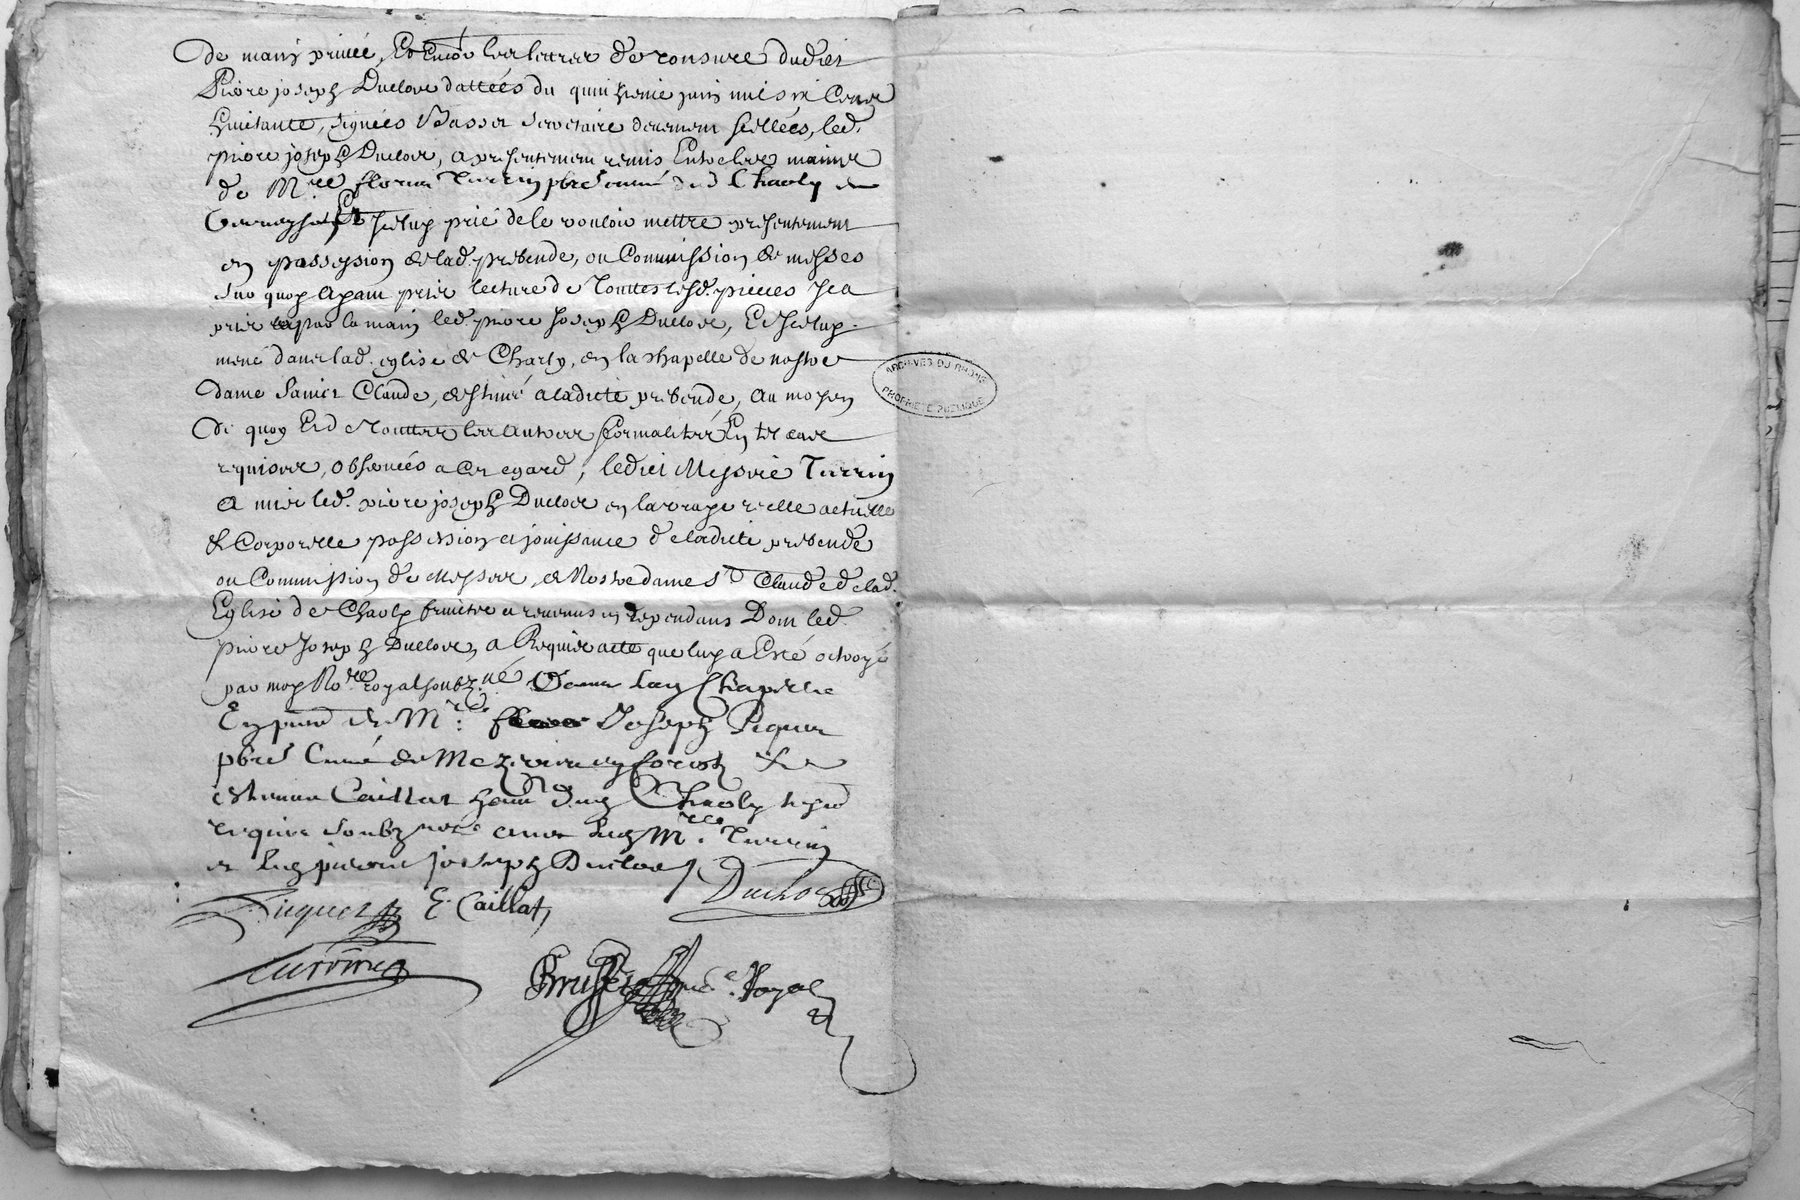 de main privée, Et Encor les lettres de tonsure dudict
Pierre joseph Duclos dattées du quinzieme juin mil six Cens
huictante, signées Basset secretaire deuement scellées, led.
pierre joseph Duclos, a presentement remis Entre les mains
de M.re florus Turrin pbre curé dud Charly
Et Icelluy prié de le vouloir mettre presentement
en possession de lad. prebende, ou Commission de messes
sur quoy Apant prise lecture de Touttes lesd. pieces Il a
pris par la main led. pierre Joseph Duclos, Et Icelluy
mené dans lad. eglise de Charly, en la chapelle de nostre
dame Sainct Claude, destiné a ladicte prebende, Au moyen
De quoy Et de Touttes les Autres formalités En tel cas
requises, observées a Cet egard, ledict Messire Turrin
A mis led. pierre joseph Duclos en la vraye reelle actuelle
& Corporelle possession et jouissance de ladicte prebende
ou Commission de Messes, de Nostre dame St Claude de lad.
Eglise de Charly fruictz et revenus en dependans Dont led.
pierre Joseph Duclos, a Requis acte que luy a Esté octroyé
par moy No.re royal soubz.né Dans lad Chapelle
En pnce de M.re Joseph Piquet
pbre Curé de en forest &
estienne Caillat dud Charly tesm
requis soubz avec led M.re Turrin
et led pierre joseph Duclos
Duclos
Picquet E. Caillat
Turrin
Royal
ARCHIVES DU RHÔNE
PROPRIÉTÉ PUBLIQUE